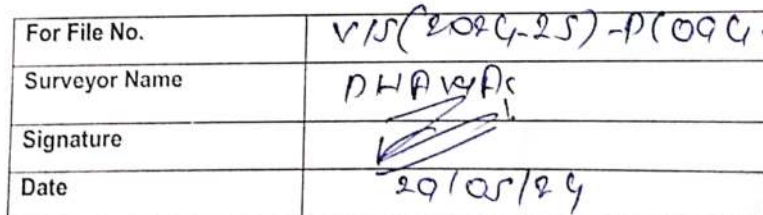 For File No. VIS(2024-25)-P(094-
Surveyor Name DHAWAL
Signature
Date 29/05/24